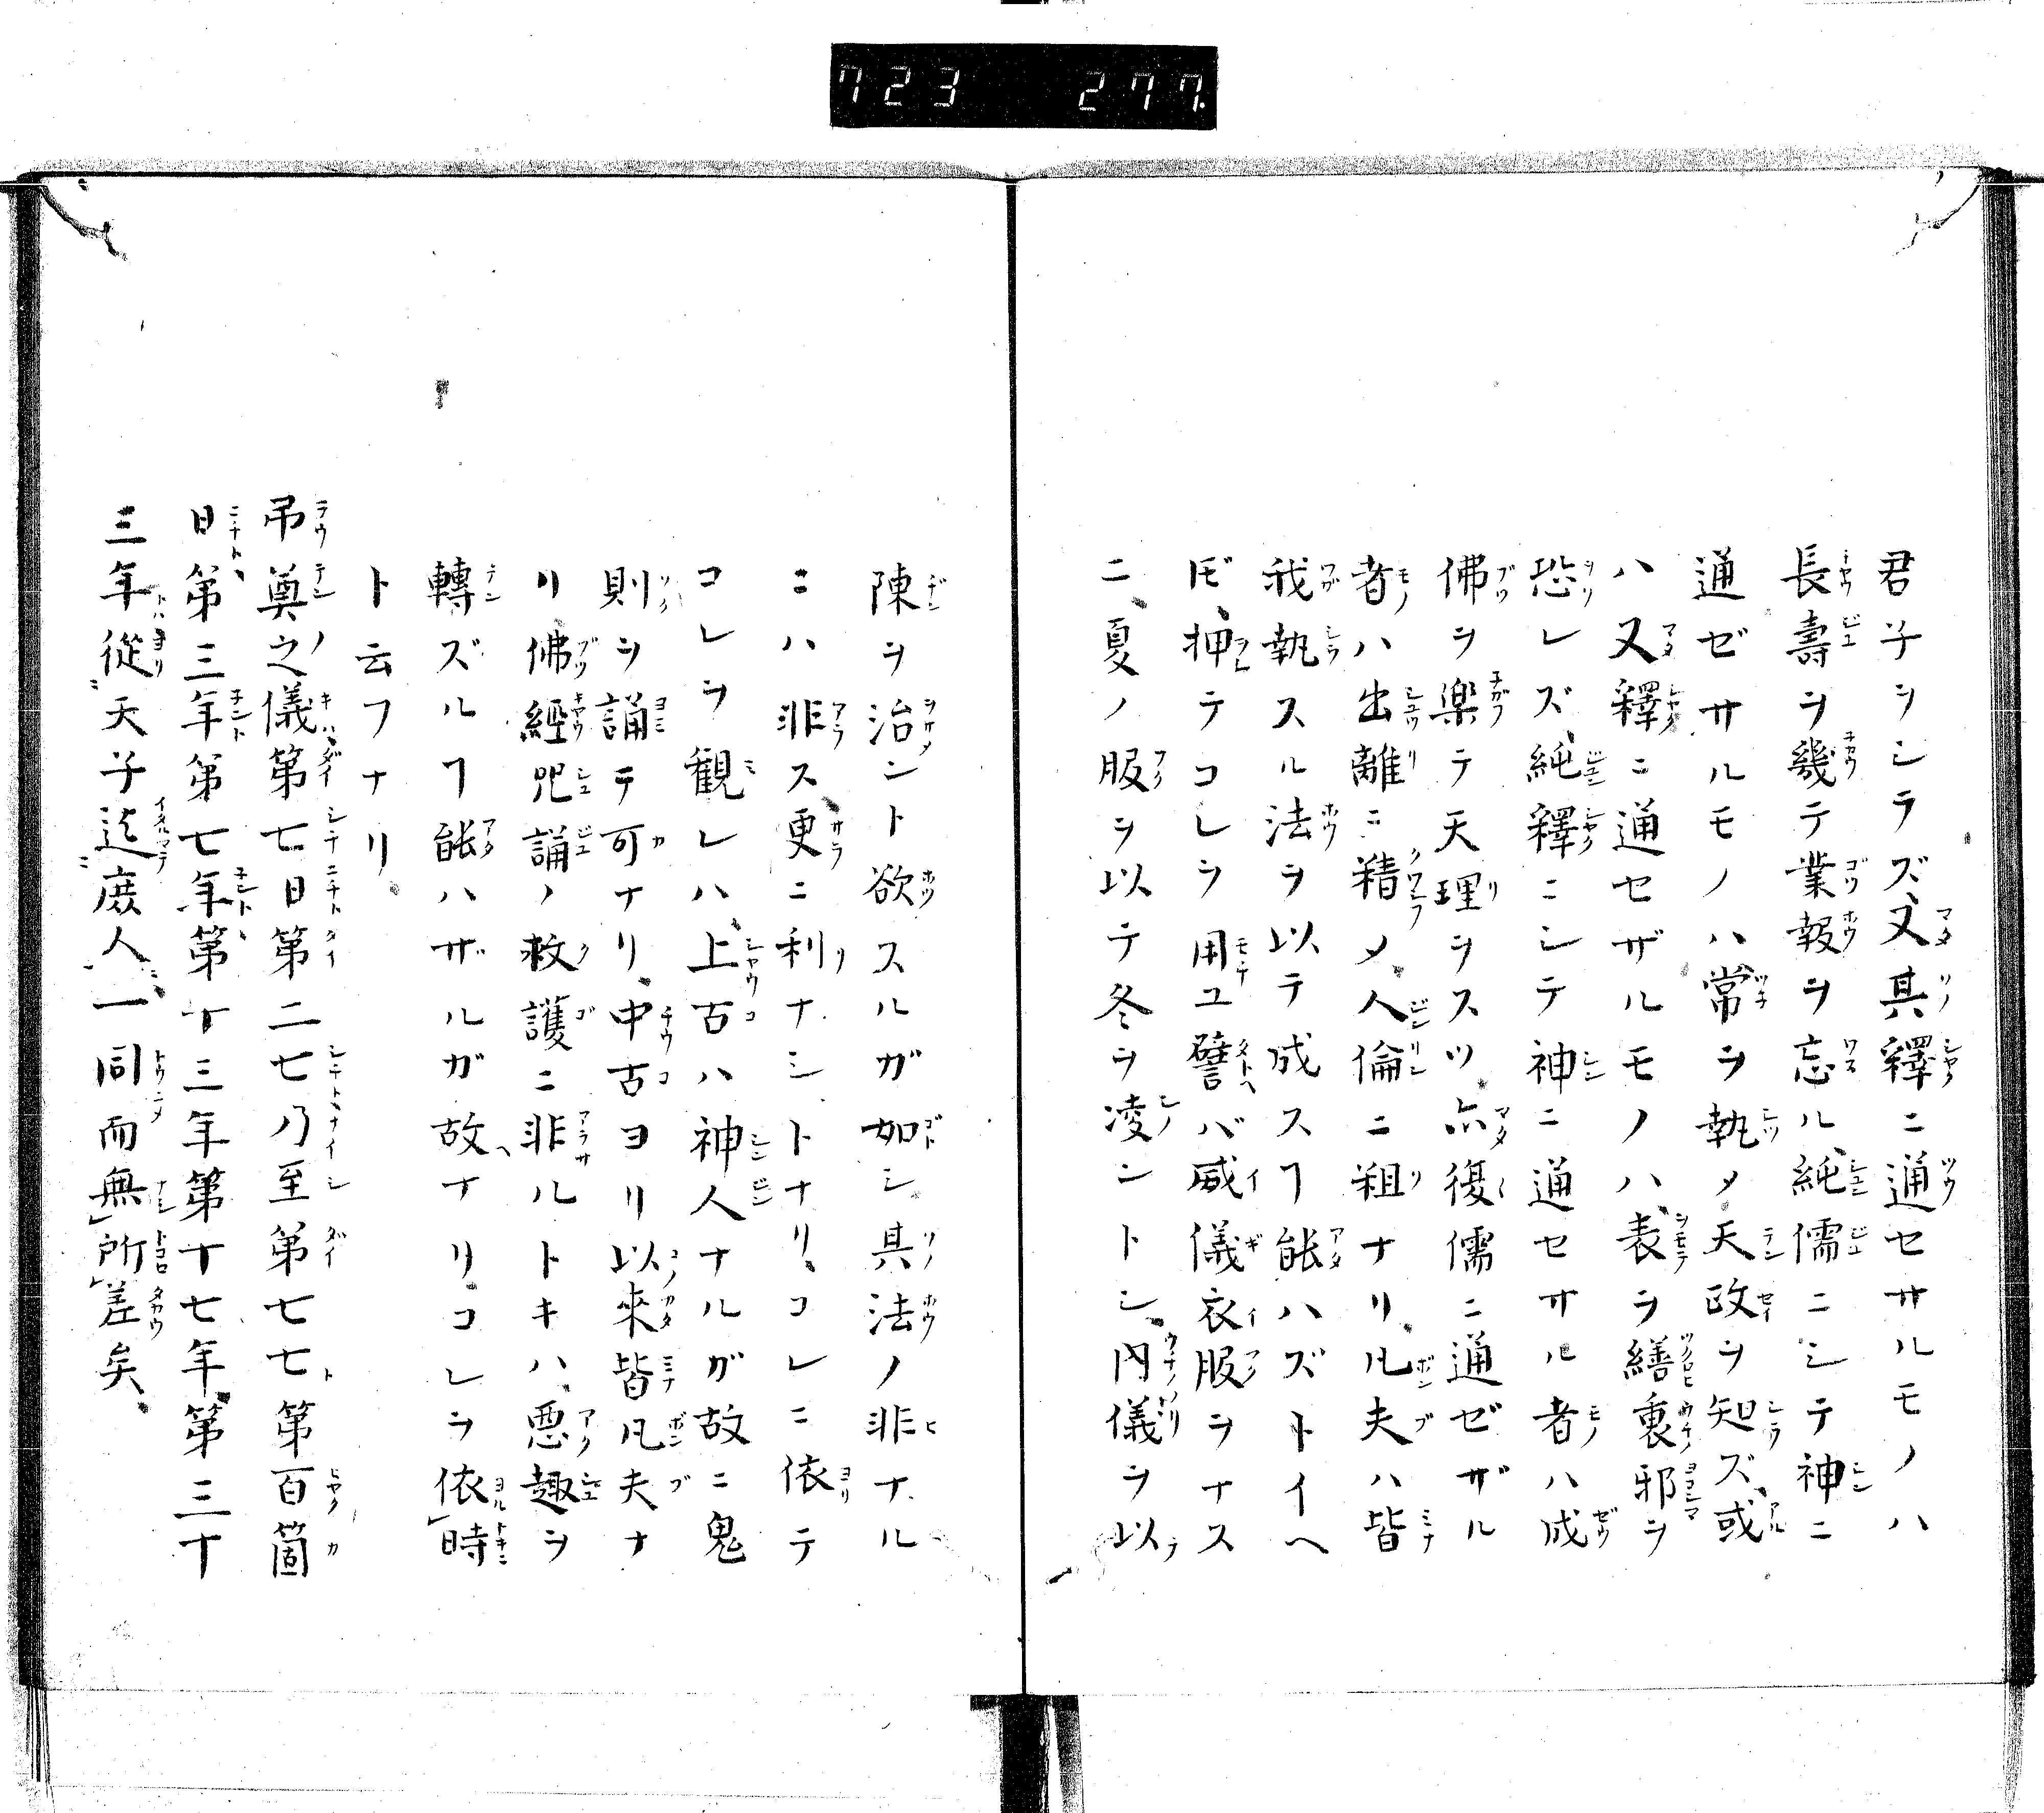 723 277.
君子ヲシラズ、又其釋ニ通セサルモノハ
長壽ヲ幾テ業報ヲ忘ル、純儒ニシテ神ニ
通ゼサルモノハ、常ヲ執メ天政ヲ知ズ、或
ハ又釋ニ通セザルモノハ、表ヲ繕裏邪ヲ
恐レズ、純釋ニシテ神ニ通セサル者ハ成
佛ヲ樂テ天理ヲスツ、亦復儒ニ通ゼザル
者ハ出離ニ精メ、人倫ニ粗ナリ、凡夫ハ皆
我執スル法ヲ以テ成スヿ能ハズトイヘ
𪜈、押テコレヲ用ユ、譬バ威儀衣服ヲナス
ニ、夏ノ服ヲ以テ冬ヲ凌ントシ、内儀ヲ以
陳ヲ治ント欲スルガ如シ、其法ノ非ナル
ニハ非ス、更ニ利ナシトナリ、コレニ依テ
コレヲ観レハ、上古ハ神人ナルガ故ニ鬼
則ヲ誦テ可ナリ、中古ヨリ以來皆凡夫ナ
リ、佛經咒誦ノ救護ニ非ルトキハ、惡趣ヲ
轉ズルヿ能ハザルガ故ナリ、コレヲ依時
ト云フナリ
弔奠之儀、第七日第二七乃至第七七第百箇
日、第三年第七年、第十三年第十七年、第三十
三年、從天子迄庶人、一同而無所差矣、